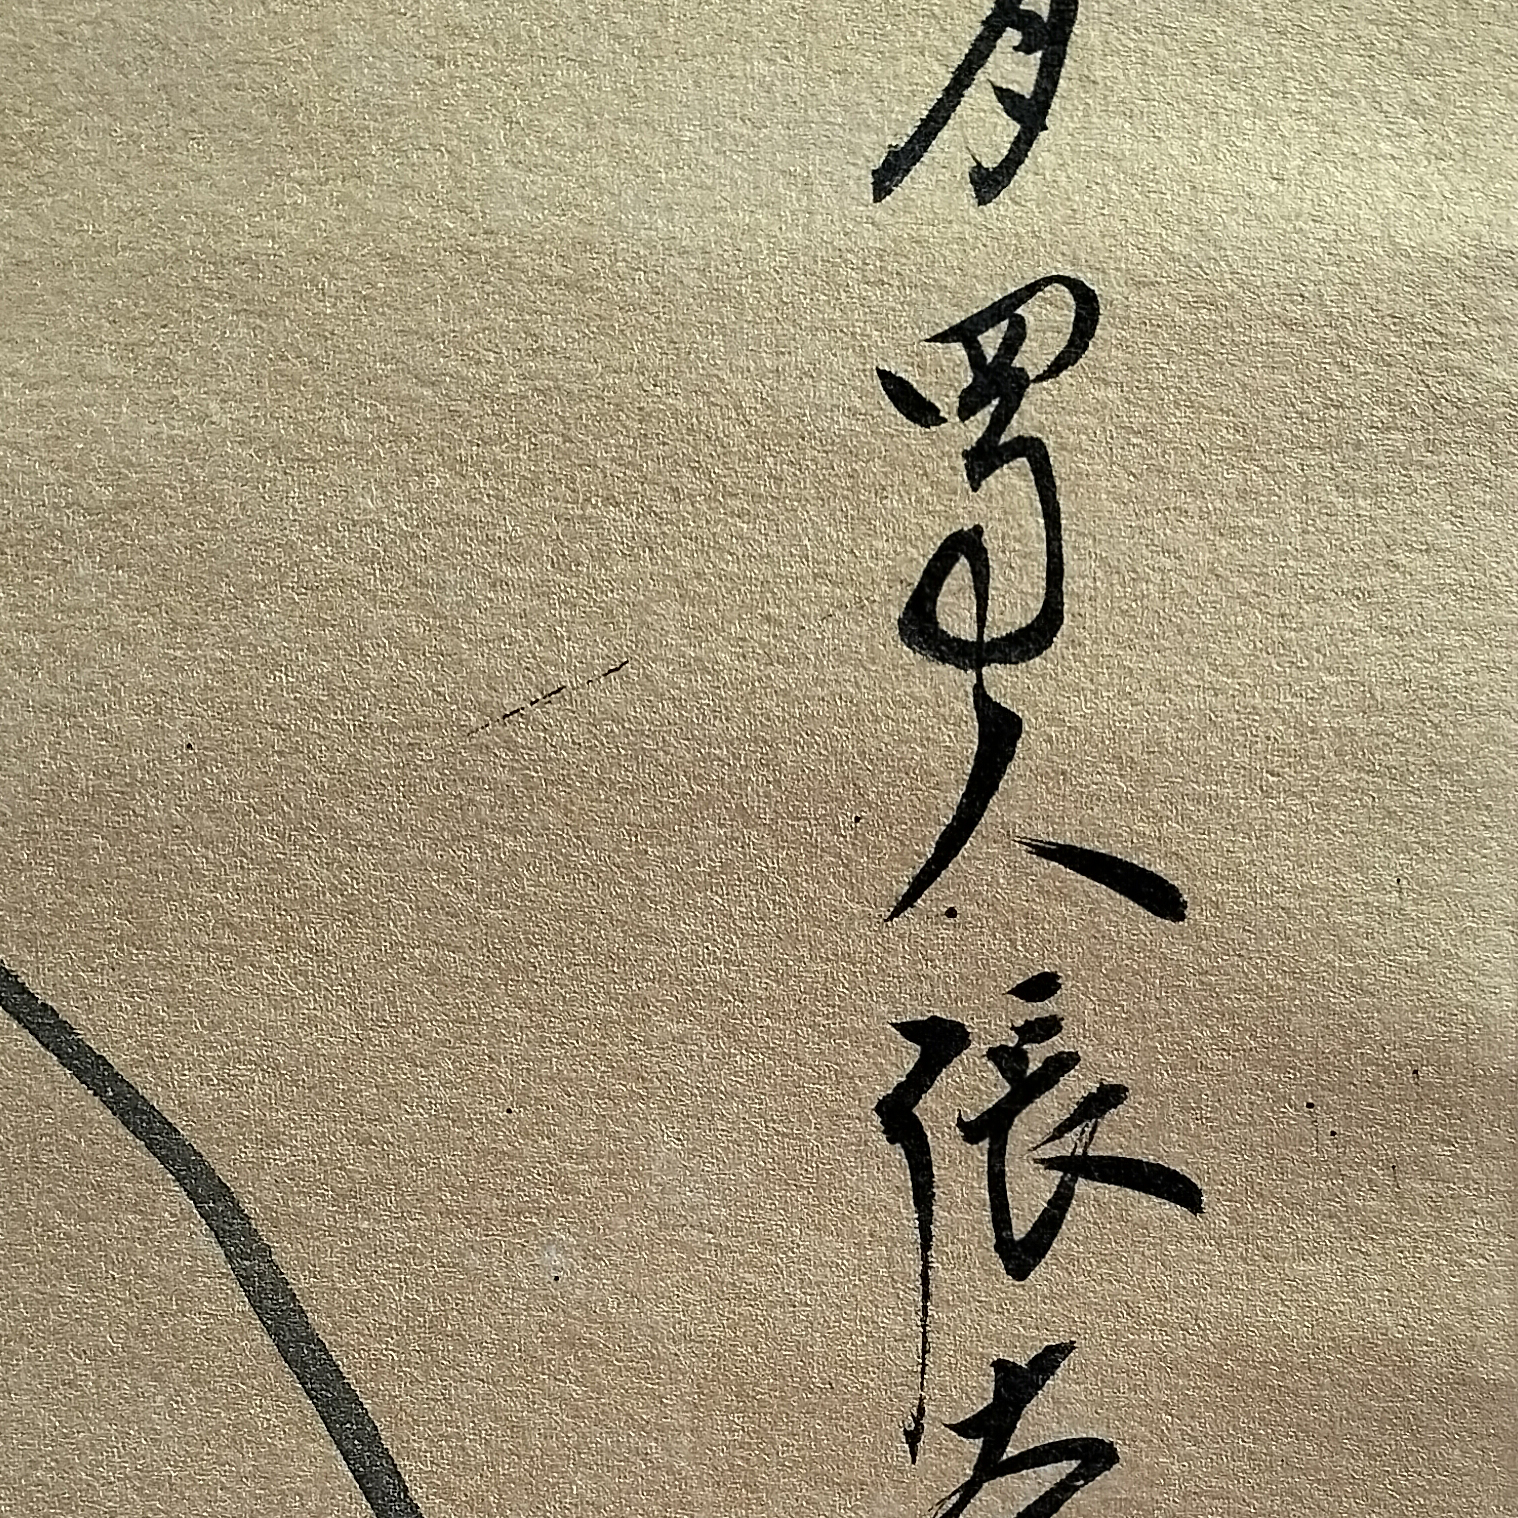 月蜀人張大